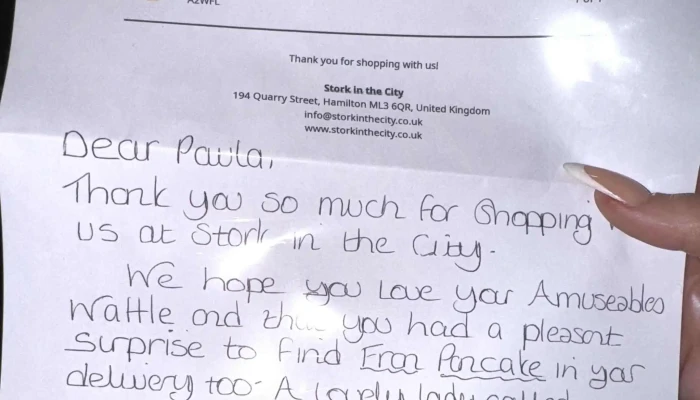 Thank you for shopping with us!
Stork in the City
194 Quarry Street, Hamilton ML3 6QR, United Kingdom
info@storkinthecity.co.uk
www.storkinthecity.co.uk
Dear Paula,
Thank you so much for shopping
us at Stork in the City.
We hope you love your Amuseables
Waffle and that you had a pleasant
surprise to find Fran Pancake in your
delivery too. A lovely lady called